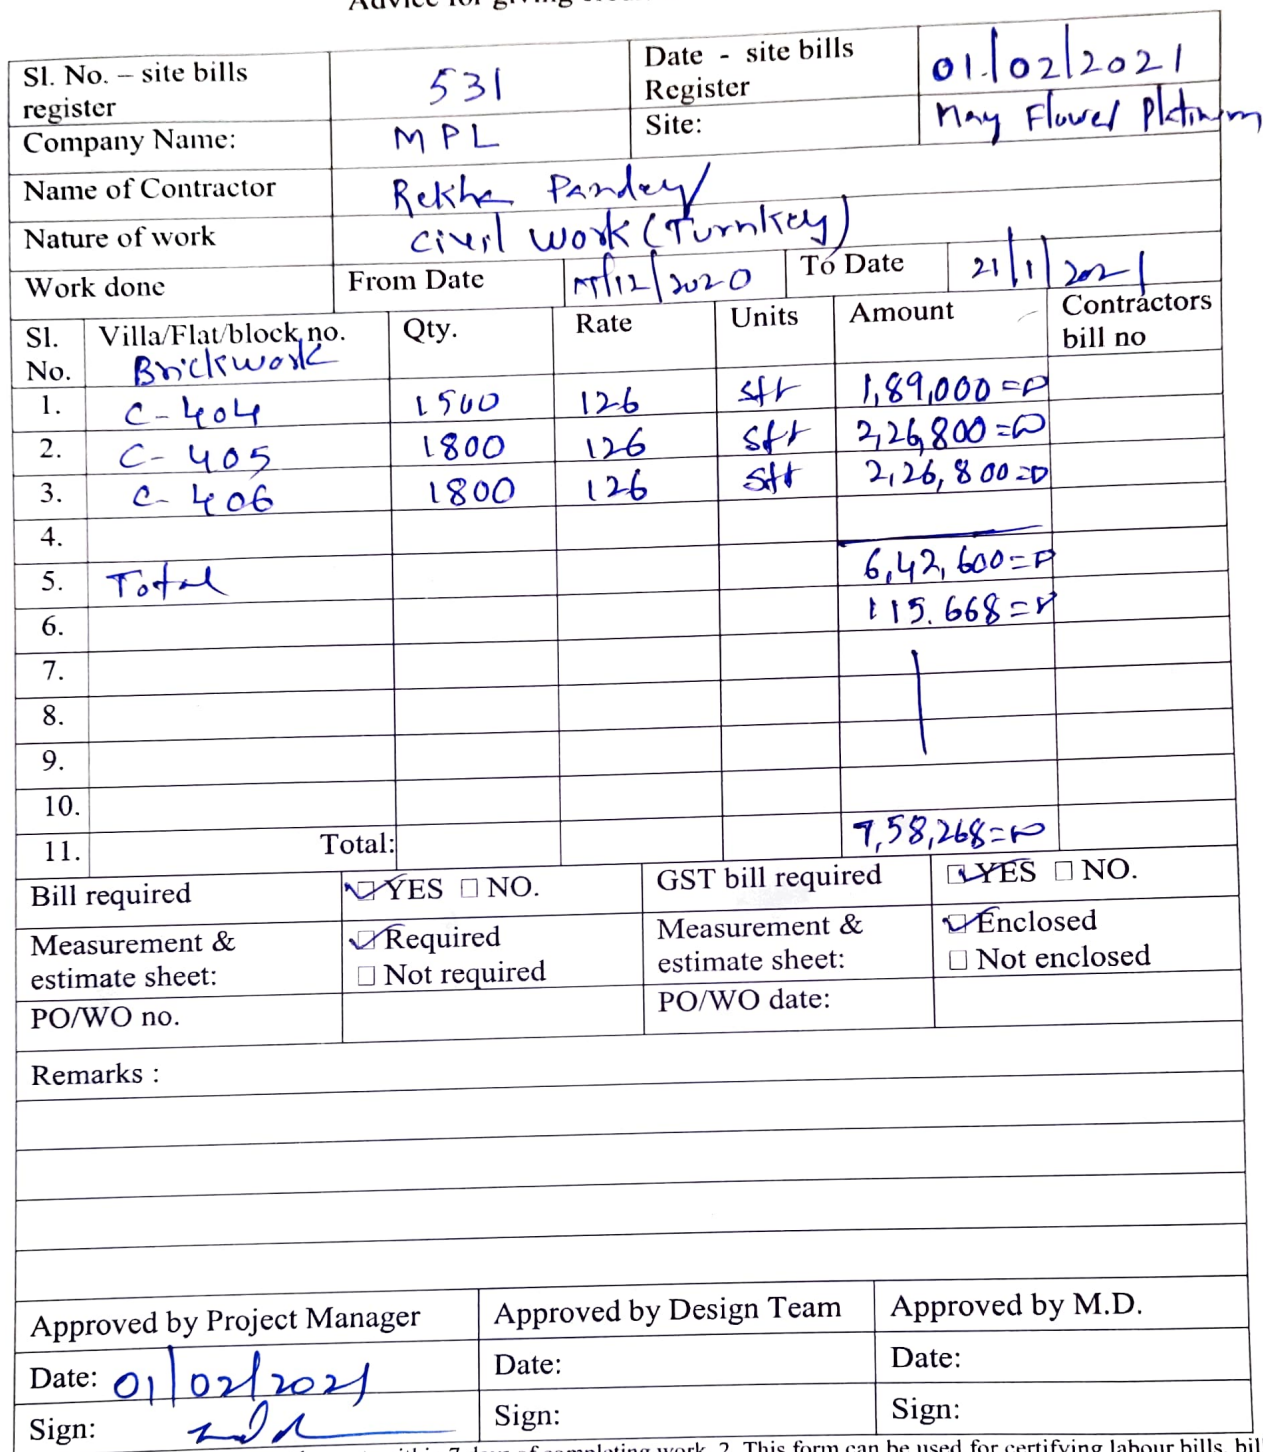 Advice for giving
Sl. No. – site bills register 531 Date - site bills Register 01/02/2021
Company Name: MPL Site: May Flower Platinum
Name of Contractor Rekha Pandey
Nature of work Civil Work (Turnkey)
Work done From Date /12/2020 To Date 21/1/2021
Sl. No. Villa/Flat/block no. Brickwork Qty. Rate Units Amount Contractors bill no
1. C-404 1500 126 sft 1,89,000=00
2. C-405 1800 126 sft 2,26,800=00
3. C-406 1800 126 sft 2,26,800=00
4.
5. Total 6,42,600=00
6. 115.668=00
7.
8.
9.
10.
11. Total: 7,58,268=00
Bill required YES NO. GST bill required YES NO.
Measurement & estimate sheet: Required Not required Measurement & estimate sheet: Enclosed Not enclosed
PO/WO no. PO/WO date:
Remarks :
Approved by Project Manager Approved by Design Team Approved by M.D.
Date: 01/02/2021 Date: Date:
Sign: Sign: Sign:
7 days of completing work. 2. This form can be used for certifying labour bills,